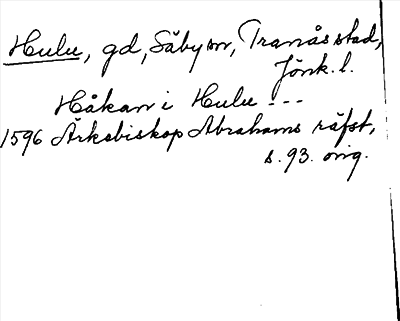 Hulu, gd, Säby sn, Tranås stad,
Jönk. l.
Håkan i Hulu ---
1596 Ärkebiskop Abrahams räfst,
s. 93. orig.